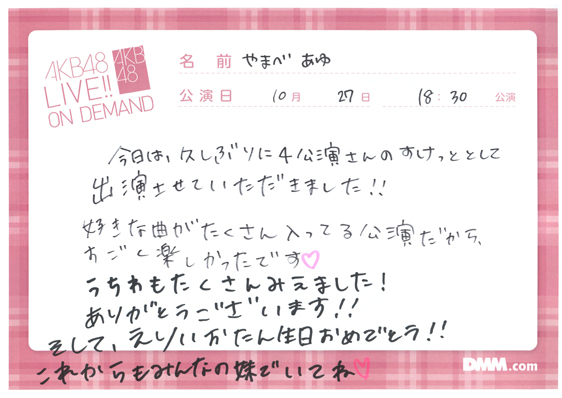 AKB48
LIVE!!
ON DEMAND
AKB
48
名前 やまべ あゆ
公演日 10月 27日 18:30 公演
今日は、久しぶりに4公演さんのすけっととして
出演させていただきました!!
好きな曲がたくさん入ってる公演だから、
すごく楽しかったです♡
うちわもたくさんみえました!
ありがとうございます!!
そして、えりい かたん生日おめでとう!!
これからもみんなの妹でいてね♡
DMM.com